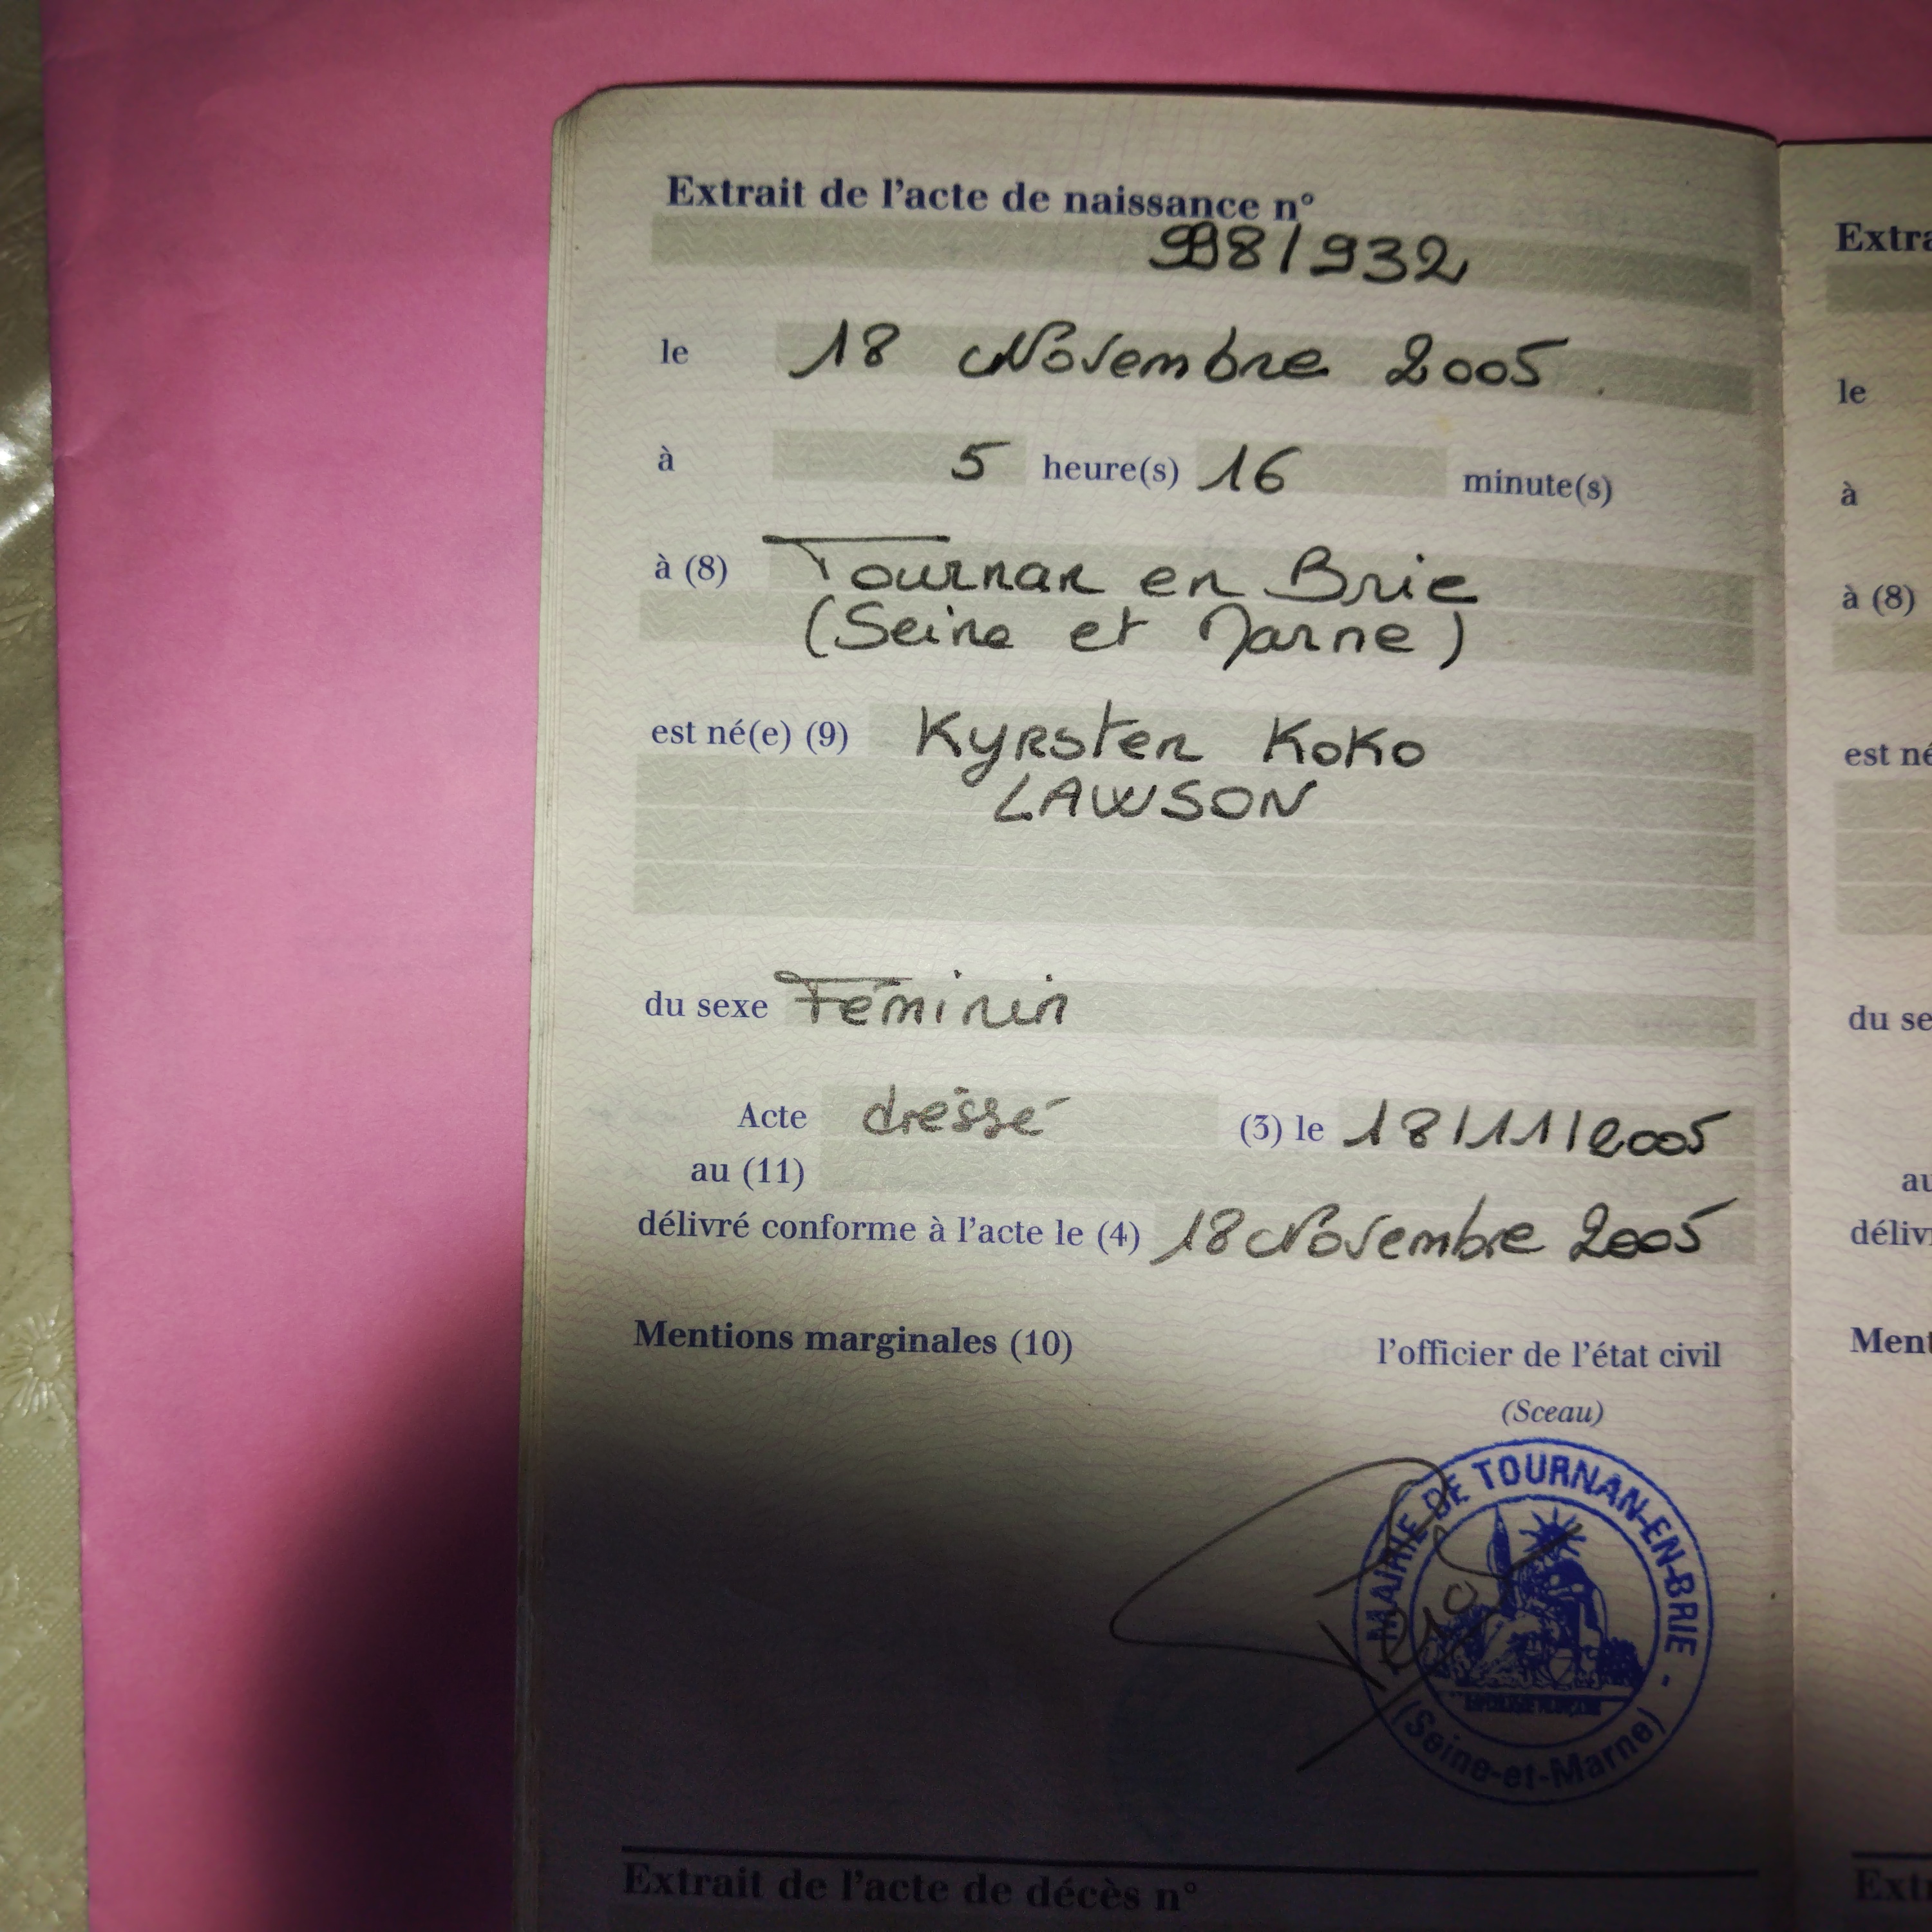 Extrait de l'acte de naissance n°
998/932
le 18 Novembre 2005
à 5 heure(s) 16 minute(s)
à (8) Tournan en Brie
(Seine et Marne)
est né(e) (9) Kyrsten Koko
LAWSON
du sexe Féminin
Acte dressé (3) le 18/11/2005
au (11)
délivré conforme à l'acte le (4) 18 Novembre 2005
Mentions marginales (10) l'officier de l'état civil
(Sceau)
MAIRIE DE TOURNAN-EN-BRIE -
(Seine-et-Marne)
Extrait de l'acte de décès n°
Extra
le
à
à (8)
est né
du se
au
déliv
Ment
Ext